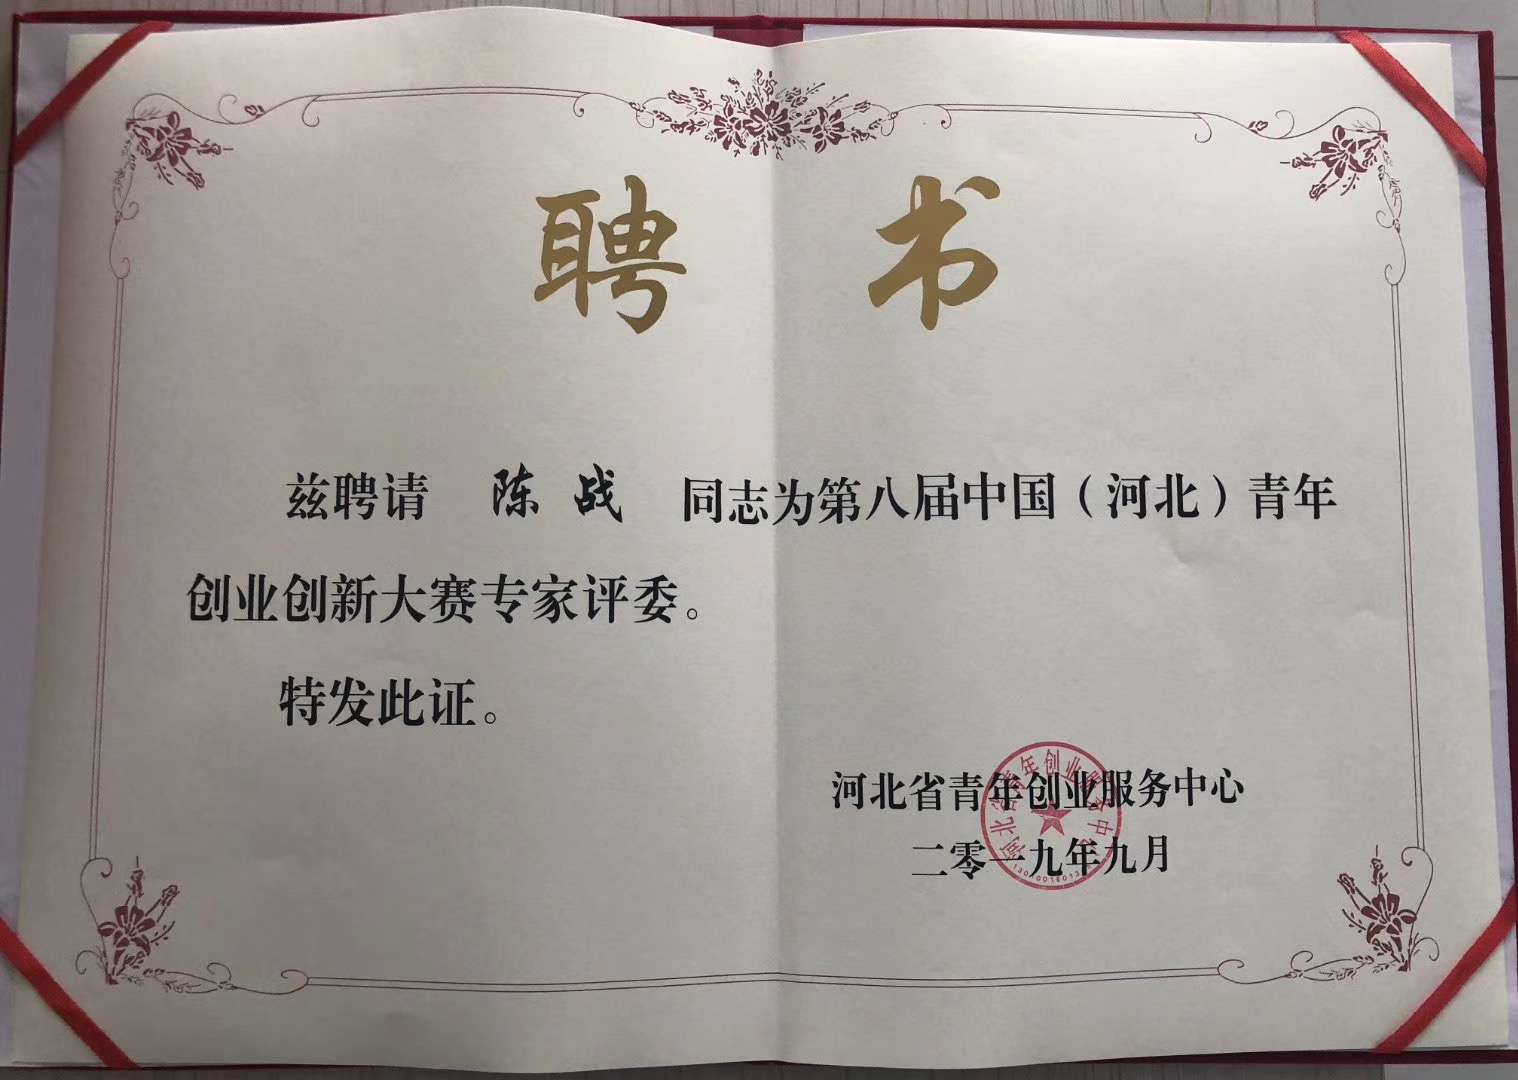 聘书
兹聘请 陈战 同志为第八届中国（河北）青年
创业创新大赛专家评委。
特发此证。
河北省青年创业服务中心
二零一九年九月
河北省青年创业服务中心